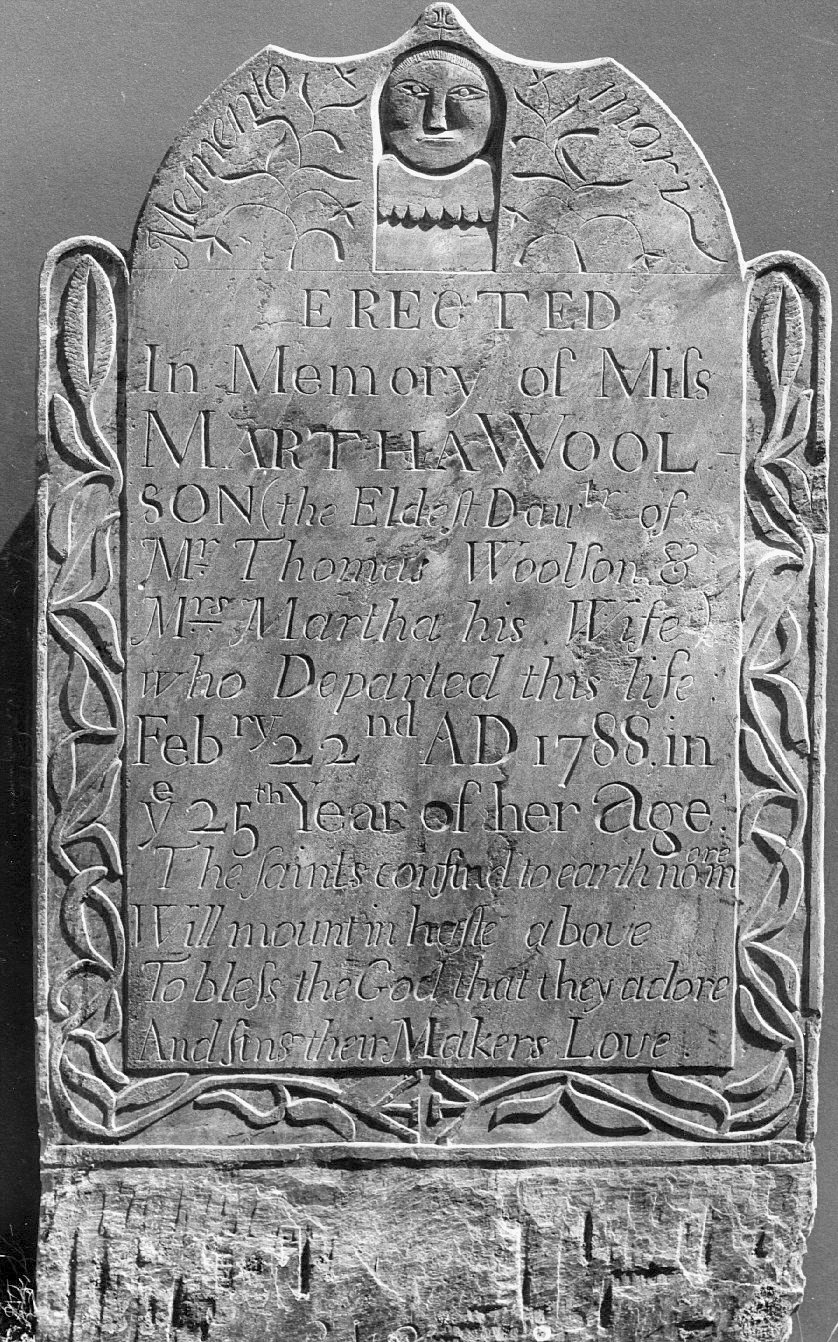 Memento mori
ERECTED
In Memory of Miſs
MARTHA WOOL
SON (the Eldeſt Dauᵗʳ of
Mʳ Thomas Woolſon &
Mʳˢ Martha his Wife)
who Departed this life
Febʳʸ 22ⁿᵈ AD 1788. in
yᵉ 25ᵗʰ Year of her Age.
The ſaints confin'd to earth no more
Will mount in haſte above
To bleſs the God that they adore
And ſing their Makers Love.